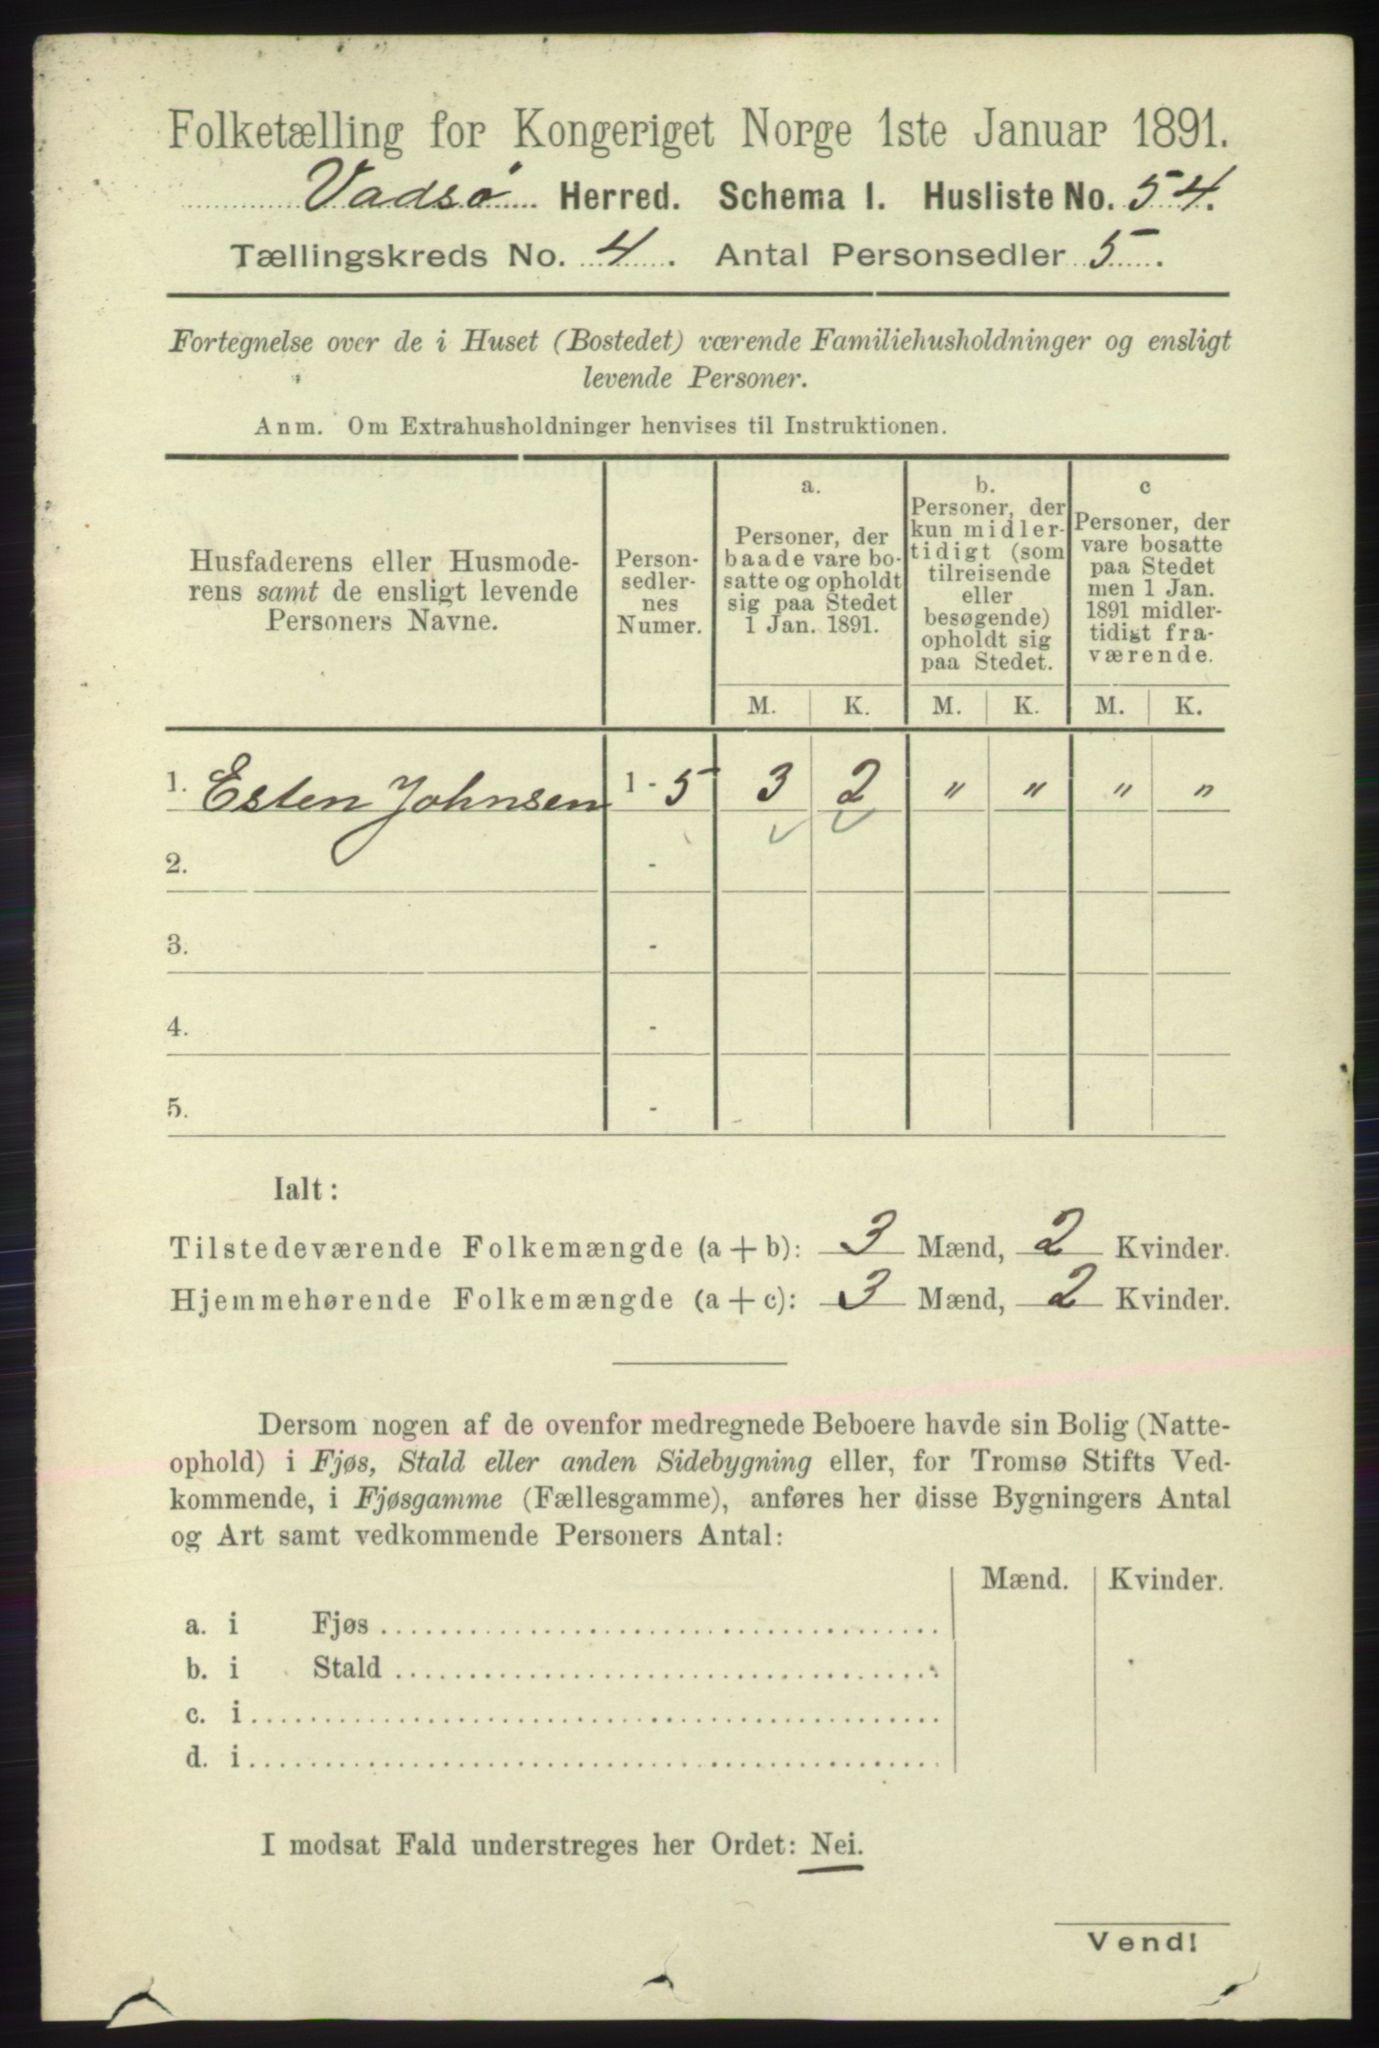 Folketælling for Kongeriget Norge 1ste Januar 1891.
Vadsø Herred. Schema I. Husliste No. 54.
Tællingskreds No. 4. Antal Personsedler 5.
Fortegnelse over de i Huset (Bostedet) værende Familiehusholdninger og ensligt
levende Personer.
Anm. Om Extrahusholdninger henvises til Instruktionen.
Husfaderens eller Husmode-
rens samt de ensligt levende
Personers Navne.
Person-
sedler-
nes
Numer.
a.
Personer, der
baade vare bo-
satte og opholdt
sig paa Stedet
1 Jan. 1891.
b.
Personer, der
kun midler-
tidigt (som
tilreisende
eller
besøgende)
opholdt sig
paa Stedet.
c
Personer, der
vare bosatte
paa Stedet
men 1 Jan.
1891 midler-
tidigt fra-
værende.
M. K. M. K. M. K.
1. Esten Johnsen 1 - 5 3 2 " " " "
2. -
3. -
4. -
5. -
Ialt:
Tilstedeværende Folkemængde (a + b): 3 Mænd, 2 Kvinder.
Hjemmehørende Folkemængde (a + c): 3 Mænd, 2 Kvinder.
Dersom nogen af de ovenfor medregnede Beboere havde sin Bolig (Natte-
ophold) i Fjøs, Stald eller anden Sidebygning eller, for Tromsø Stifts Ved-
kommende, i Fjøsgamme (Fællesgamme), anføres her disse Bygningers Antal
og Art samt vedkommende Personers Antal:
Mænd. Kvinder.
a. i Fjøs
b. i Stald
c. i
d. i
I modsat Fald understreges her Ordet: Nei.
Vend!